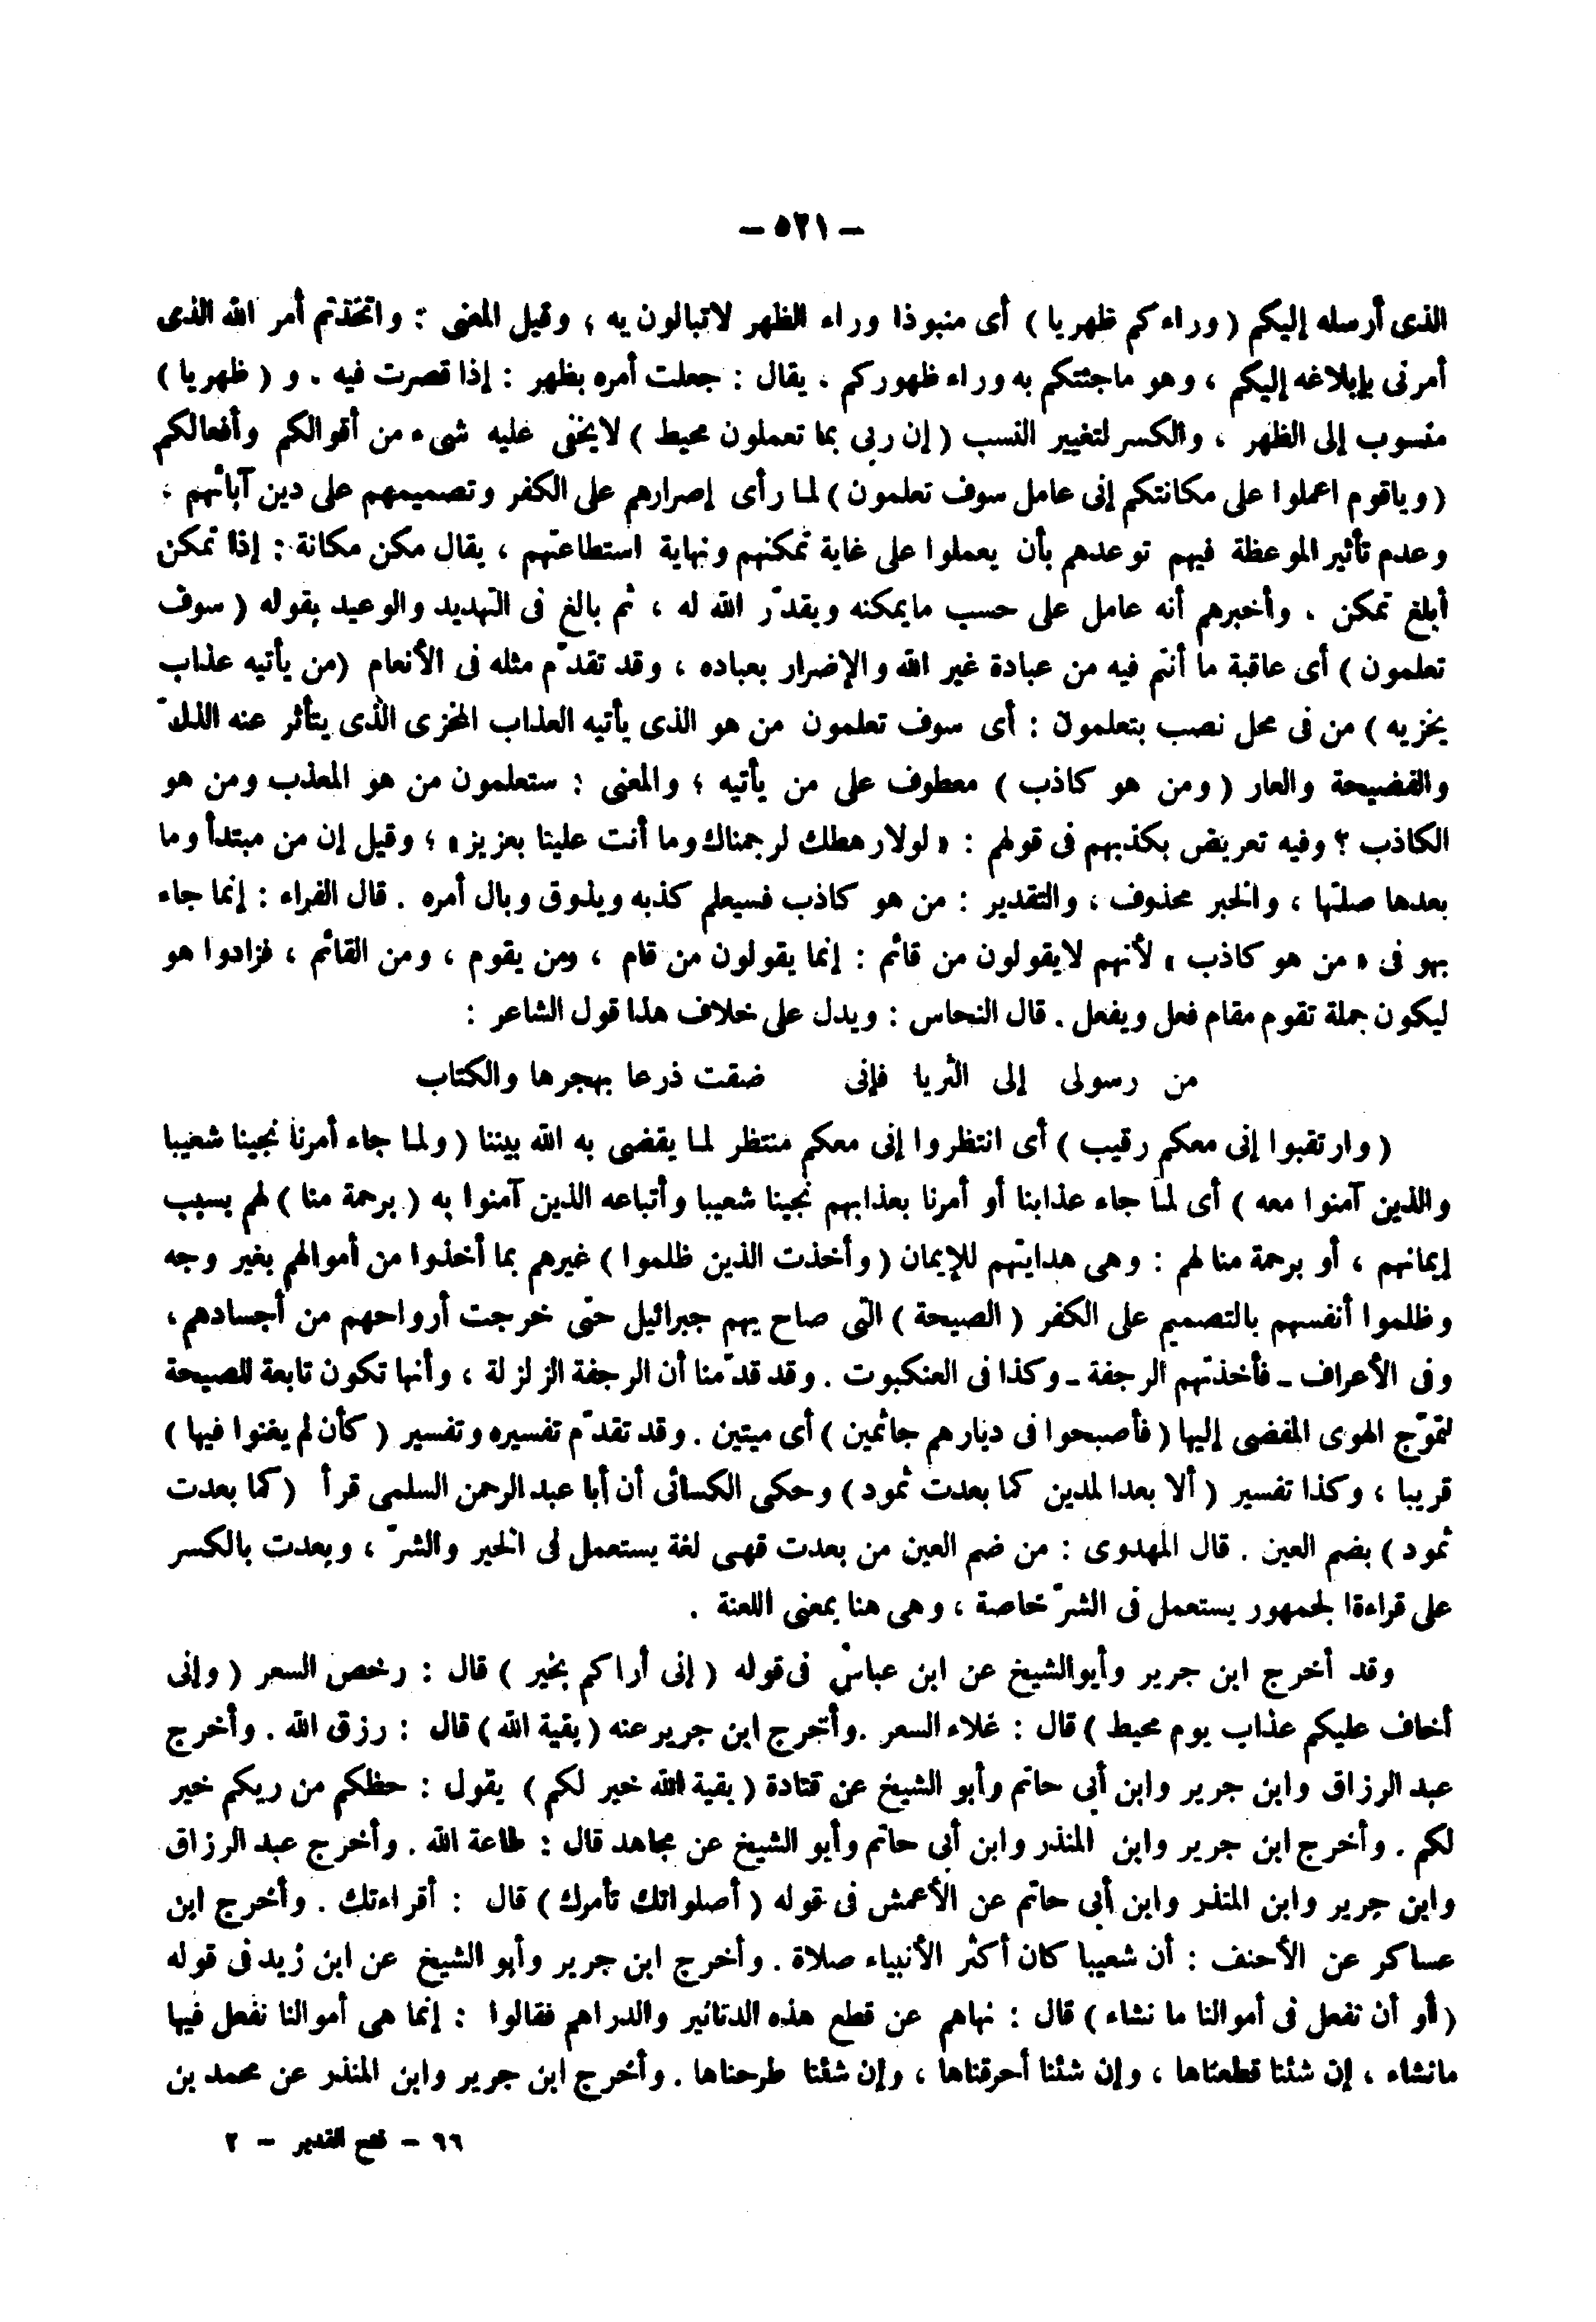 — ٥٢١ —
الذى أرسله إليكم ( وراءكم ظهريا ) أى منبوذا وراء الظهر لاتبالون به ؛ وقيل المعنى : واتخذتم أمر الله الذى
أمرنى بإبلاغه إليكم ، وهو ماجئتكم به وراء ظهوركم . يقال : جعلت أمره بظهر : إذا قصرت فيه . و ( ظهريا )
منسوب إلى الظهر ، والكسر لتغيير النسب ( إن ربى بما تعملون محيط ) لايخفى عليه شىء من أقوالكم وأفعالكم
( وياقوم اعملوا على مكانتكم إنى عامل سوف تعلمون ) لما رأى إصرارهم على الكفر وتصميمهم على دين آبائهم ،
وعدم تأثير الموعظة فيهم توعدهم بأن يعملوا على غاية تمكنهم ونهاية استطاعتهم ، يقال مكن مكانة : إذا تمكن
أبلغ تمكن . وأخبرهم أنه عامل على حسب مايمكنه ويقدّر الله له ، ثم بالغ فى التهديد والوعيد بقوله ( سوف
تعلمون ) أى عاقبة ما أنتم فيه من عبادة غير الله والإضرار بعباده ، وقد تقدّم مثله فى الأنعام ( من يأتيه عذاب
يخزيه ) من فى محل نصب بتعلمون : أى سوف تعلمون من هو الذى يأتيه العذاب المخزى الذى يتأثر عنه الذلّ
والفضيحة والعار ( ومن هو كاذب ) معطوف على من يأتيه ؛ والمعنى : ستعلمون من هو المعذب ومن هو
الكاذب ؟ وفيه تعريض بكذبهم فى قولهم : « لولا رهطك لرجمناك وما أنت علينا بعزيز » ؛ وقيل إن من مبتدأ وما
بعدها صلتها ، والخبر محذوف ، والتقدير : من هو كاذب فسيعلم كذبه ويذوق وبال أمره . قال الفراء : إنما جاء
بهو فى « من هو كاذب » لأنهم لايقولون من قائم : إنما يقولون من قام ، ومن يقوم ، ومن القائم ، فزادوا هو
ليكون جملة تقوم مقام فعل ويفعل . قال النحاس : ويدل على خلاف هذا قول الشاعر :
من رسولى إلى الثريا فإنى ضقت ذرعا بهجرها والكتاب
( وارتقبوا إنى معكم رقيب ) أى انتظروا إنى معكم منتظر لما يقضى به الله بيننا ( ولما جاء أمرنا نجينا شعيبا
والذين آمنوا معه ) أى لما جاء عذابنا أو أمرنا بعذابهم نجينا شعيبا وأتباعه الذين آمنوا به ( برحمة منا ) لهم بسبب
إيمانهم ، أو برحمة منا لهم : وهى هدايتهم للإيمان ( وأخذت الذين ظلموا ) غيرهم بما أخذوا من أموالهم بغير وجه
وظلموا أنفسهم بالتصميم على الكفر ( الصيحة ) التى صاح بهم جبرائيل حتى خرجت أرواحهم من أجسادهم ،
وفى الأعراف ـ فأخذتهم الرجفة ـ وكذا فى العنكبوت . وقد قدّمنا أن الرجفة الزلزلة ، وأنها تكون تابعة للصيحة
لتموّج الهوى المفضى إليها ( فأصبحوا فى ديارهم جاثمين ) أى ميتين . وقد تقدّم تفسيره وتفسير ( كأن لم يغنوا فيها )
قريبا ، وكذا تفسير ( ألا بعدا لمدين كما بعدت ثمود ) وحكى الكسائى أن أبا عبد الرحمن السلمى قرأ ( كما بعدت
ثمود ) بضم العين . قال المهدوى : من ضم العين من بعدت فهى لغة يستعمل فى الخير والشرّ ، وبعدت بالكسر
على قراءة الجمهور يستعمل فى الشرّ خاصة ، وهى هنا بمعنى اللعنة .
وقد أخرج ابن جرير وأبو الشيخ عن ابن عباس فى قوله ( إنى أراكم بخير ) قال : رخص السعر ( وإنى
أخاف عليكم عذاب يوم محيط ) قال : غلاء السعر . وأخرج ابن جرير عنه ( بقية الله ) قال : رزق الله . وأخرج
عبد الرزاق وابن جرير وابن أبى حاتم وأبو الشيخ عن قتادة ( بقية الله خير لكم ) يقول : حظكم من ربكم خير
لكم . وأخرج ابن جرير وابن المنذر وابن أبى حاتم وأبو الشيخ عن مجاهد قال : طاعة الله . وأخرج عبد الرزاق
وابن جرير وابن المنذر وابن أبى حاتم عن الأعمش فى قوله ( أصلواتك تأمرك ) قال : أقراءتك . وأخرج ابن
عساكر عن الأحنف : أن شعيبا كان أكثر الأنبياء صلاة . وأخرج ابن جرير وأبو الشيخ عن ابن زيد فى قوله
( أو أن نفعل فى أموالنا ما نشاء ) قال : نهاهم عن قطع هذه الدنانير والدراهم فقالوا : إنما هى أموالنا نفعل فيها
مانشاء ، إن شئنا قطعناها ، وإن شئنا أحرقناها ، وإن شئنا طرحناها . وأخرج ابن جرير وابن المنذر عن محمد بن
٦٦ — فتح القدير — ٢